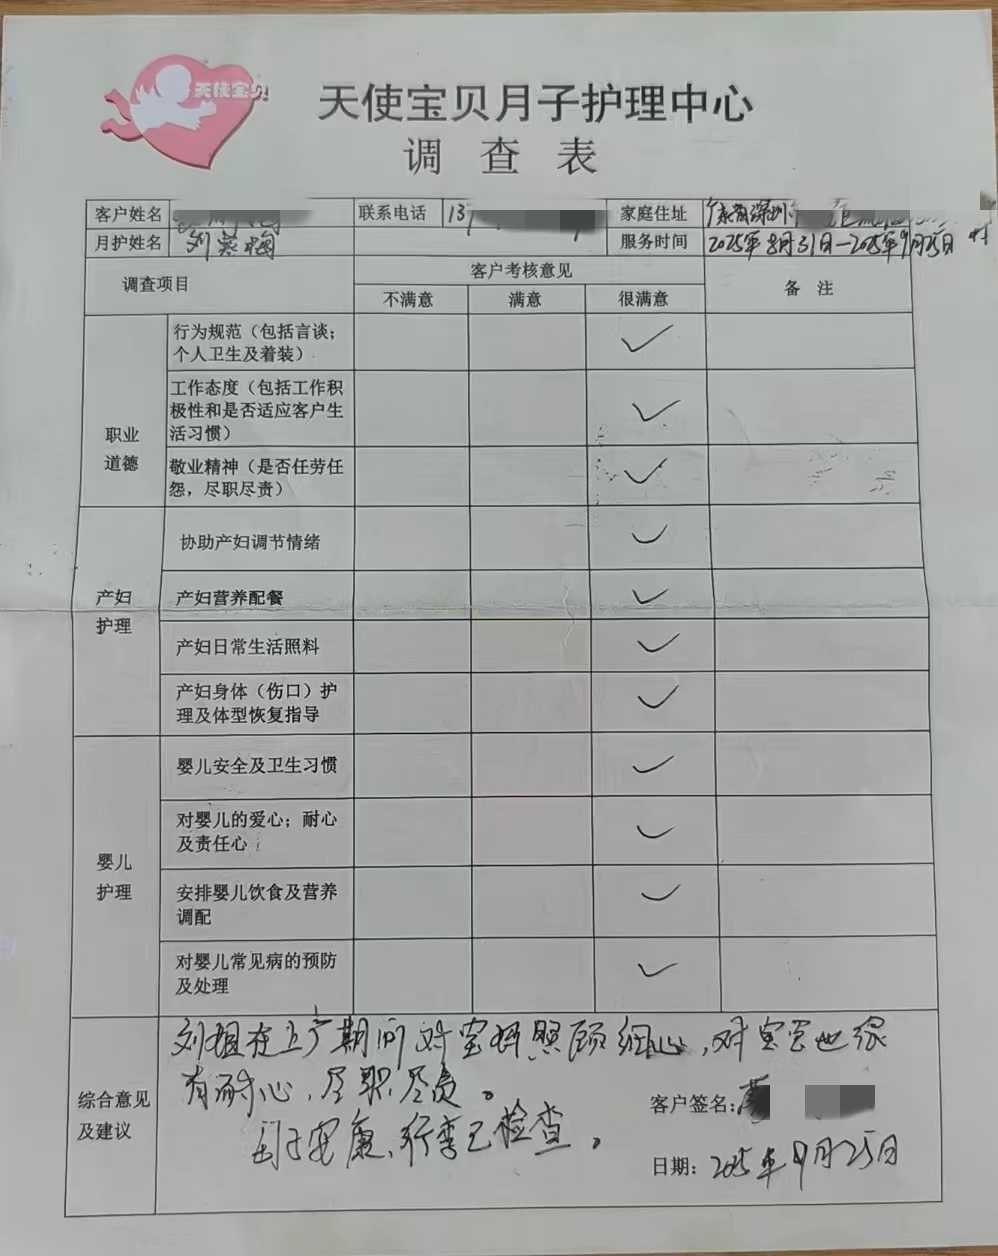 天使宝贝
天使宝贝月子护理中心
调查表
客户姓名 联系电话 13 家庭住址 广东省深圳
月护姓名 刘荣梅 服务时间 2025年8月31日—2025年9月25日
调查项目 客户考核意见 备注
不满意 满意 很满意
职业
道德
行为规范（包括言谈；
个人卫生及着装） ✓
工作态度（包括工作积
极性和是否适应客户生
活习惯） ✓
敬业精神（是否任劳任
怨，尽职尽责） ✓
产妇
护理
协助产妇调节情绪 ✓
产妇营养配餐 ✓
产妇日常生活照料 ✓
产妇身体（伤口）护
理及体型恢复指导 ✓
婴儿
护理
婴儿安全及卫生习惯 ✓
对婴儿的爱心；耐心
及责任心； ✓
安排婴儿饮食及营养
调配 ✓
对婴儿常见病的预防
及处理 ✓
综合意见
及建议
刘姐在上户期间对宝妈照顾细心，对宝宝也很
有耐心，尽职尽责。
母子安康，行李已检查。
客户签名：
日期：2025年9月25日